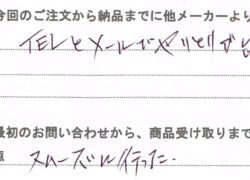 今回のご注文から納品までに他メーカーより
TELとメールでやりとりが
最初のお問い合わせから、商品受け取りまで
点 スムーズに行った.